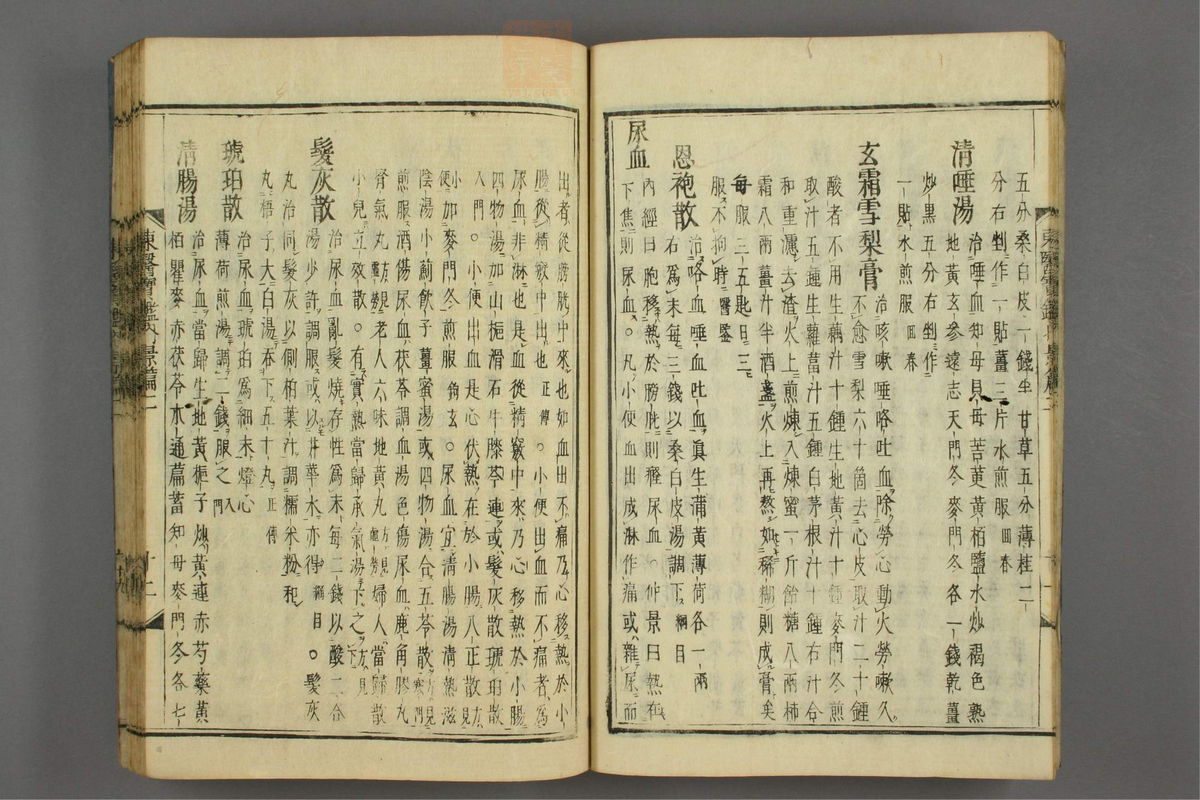 五分桑白皮一錢半甘草五分薄桂二
分右剉作一貼薑三片水煎服回春
清唾湯 治唾血知母貝母苦蔞黃栢鹽水炒褐色熟
地黃玄參遠志天門冬麥門冬各一錢乾薑
炒黑五分右剉作
一貼水煎服回春
玄霜雪梨膏 治咳嗽唾咯吐血除勞心動火勞嗽久
不愈雪梨六十箇去心皮取汁二十鍾
酸者不用生藕汁十鍾生地黃汁十鍾麥門冬煎
取汁五鍾生蘿葍汁五鍾白茅根汁十鍾右汁合
和重濾去渣火上煎煉入煉蜜一斤飴糖八兩柿
霜八兩薑汁半酒盞火上再熬如稀糊則成膏矣
每服三五匙日三
服不拘時醫鑑
恩袍散 治咯血唾血吐血眞生蒲黃薄荷各一兩
右爲末每三錢以桑白皮湯調下綱目
尿血 內經曰胞移熱於膀胱則癃尿血○仲景曰熱在
下焦則尿血○凡小便血出成淋作痛或雜尿而
東醫寶鑑內景篇二
出者從膀胱中來也如血出不痛乃心移熱於小
腸從精竅中出也正傳○小便出血而不痛者爲
尿血非淋也是血從精竅中來乃心移熱於小腸
四物湯加山梔滑石牛膝芩連或髮灰散琥珀散
入門○小便出血是心伏熱在於小腸八正散方見
小便加麥門冬煎服鉤玄○尿血宜淸腸湯淸熱滋
陰湯小薊飮子薑蜜湯或四物湯合五苓散方見寒門
煎服酒傷尿血茯苓調血湯色傷尿血鹿角膠丸
腎氣丸方見虛勞老人六味地黃丸方見虛勞婦人當歸散
小兒立效散○有實熱當歸承氣湯下之方見下
髮灰散 治尿血亂髮燒存性爲末每二錢以酸二合
湯少許調服或以井華水亦得綱目○髮灰
丸治同髮灰以側柏葉汁調糯米粉和
丸梧子大白湯吞下五十丸正傳
琥珀散 治尿血琥珀爲細末燈心
薄荷煎湯調二錢服之入門
淸腸湯 治尿血當歸生地黃梔子炒黃連赤芍藥黃
栢瞿麥赤茯苓木通萹蓄知母麥門冬各七
東醫寶鑑內景篇二
十二